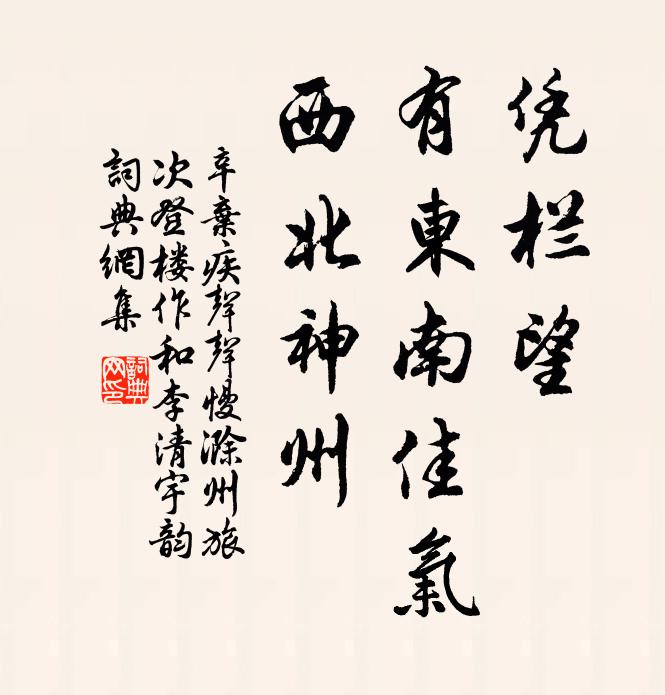 凭栏望
有東南佳氣
西北神州
辛棄疾聲聲慢滁州旅
次登楼作和李清宇韵
詞典網集
詞典
网印